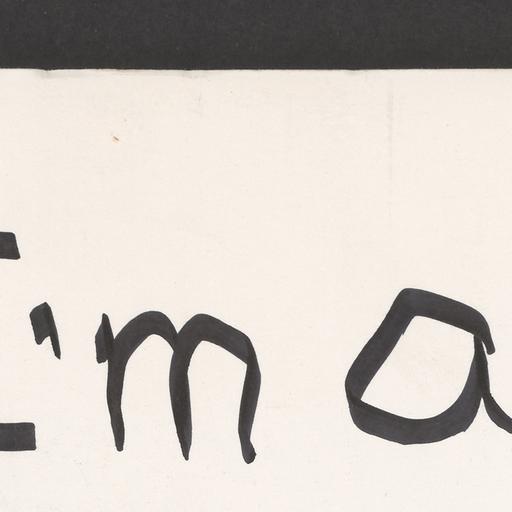 I'm a